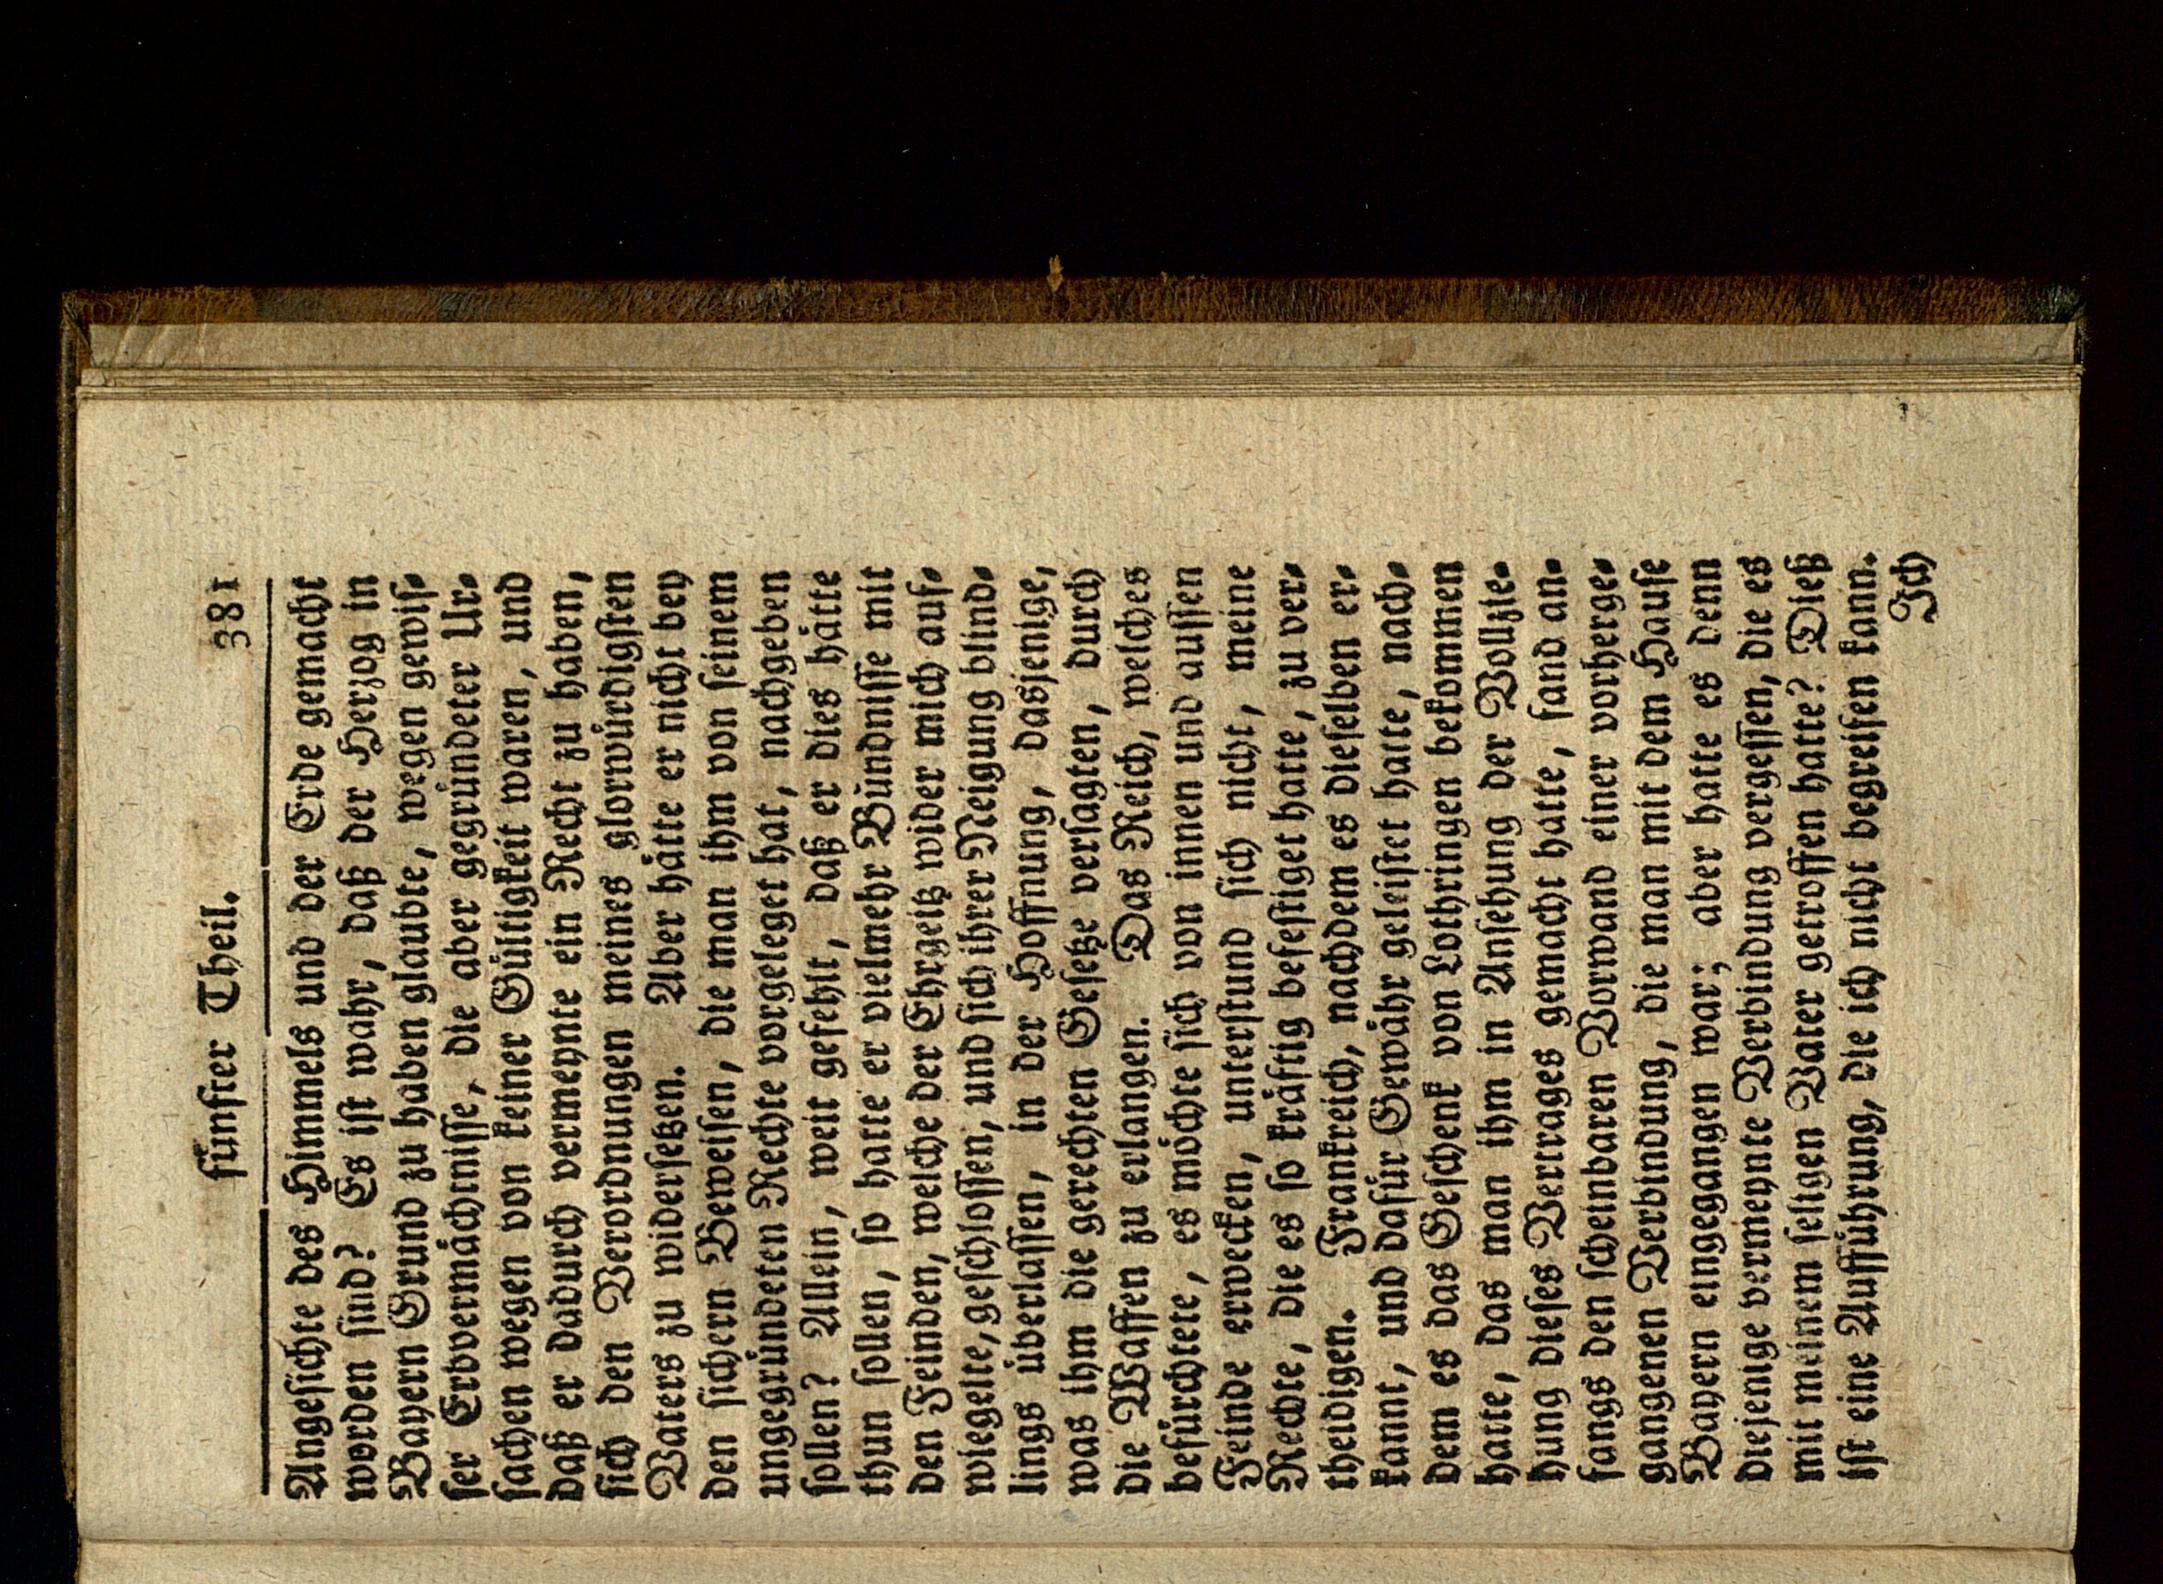 fünfter Theil. 381
Angesichte des Himmels und der Erde gemacht
worden sind? Es ist wahr, daß der Herzog in
Bayern Grund zu haben glaubte, wegen gewis-
ser Erbvermächtnisse, die aber gegründeter Ur-
sachen wegen von keiner Gültigkeit waren, und
daß er dadurch vermeynte ein Recht zu haben,
sich den Verordnungen meines glorwürdigsten
Vaters zu widersetzen. Aber hätte er nicht bey
den sichern Beweisen, die man ihm von seinem
ungegründeten Rechte vorgeleget hat, nachgeben
sollen? Allein, weit gefehlt, daß er dies hätte
thun sollen, so hatte er vielmehr Bündnisse mit
den Feinden, welche der Ehrgeitz wider mich auf-
wiegelte, geschlossen, und sich ihrer Neigung blind-
lings überlassen, in der Hoffnung, dasjenige,
was ihm die gerechten Gesetze versagten, durch
die Waffen zu erlangen. Das Reich, welches
befürchtete, es möchte sich von innen und aussen
Feinde erwecken, unterstund sich nicht, meine
Rechte, die es so kräftig befestiget hatte, zu ver-
theidigen. Frankreich, nachdem es dieselben er-
kannt, und dafür Gewähr geleistet hatte, nach-
dem es das Geschenk von Lothringen bekommen
hatte, das man ihm in Ansehung der Vollzie-
hung dieses Vertrages gemacht hatte, fand an-
fangs den scheinbaren Vorwand einer vorherge-
gangenen Verbindung, die man mit dem Hause
Bayern eingegangen war; aber hatte es denn
diejenige vermeynte Verbindung vergessen, die es
mit meinem seligen Vater getroffen hatte? Dieß
ist eine Aufführung, die ich nicht begreifen kann.
Ich